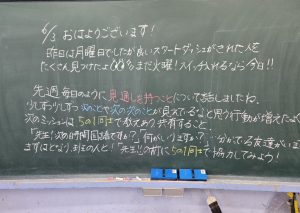 6/3 おはようございます!
昨日は月曜日でしたが良いスタートダッシュがきれた人を
たくさん見つけたよ まだ火曜!スイッチ入れるなら今日!!
先週毎日のように見通しを持つことについて話しましたね。
少しずつ少しずつ次のことや次の次のことが見えてるなと思う行動が増えたよ
次のミッションは5の1同士で教えあう共有すること
「先生!次の時間国語ですか?」「何がいりますか?」…分かってる友達がいま
まずはとなり、班の人と!「先生!」の前に5の1同士で協力してみよう!